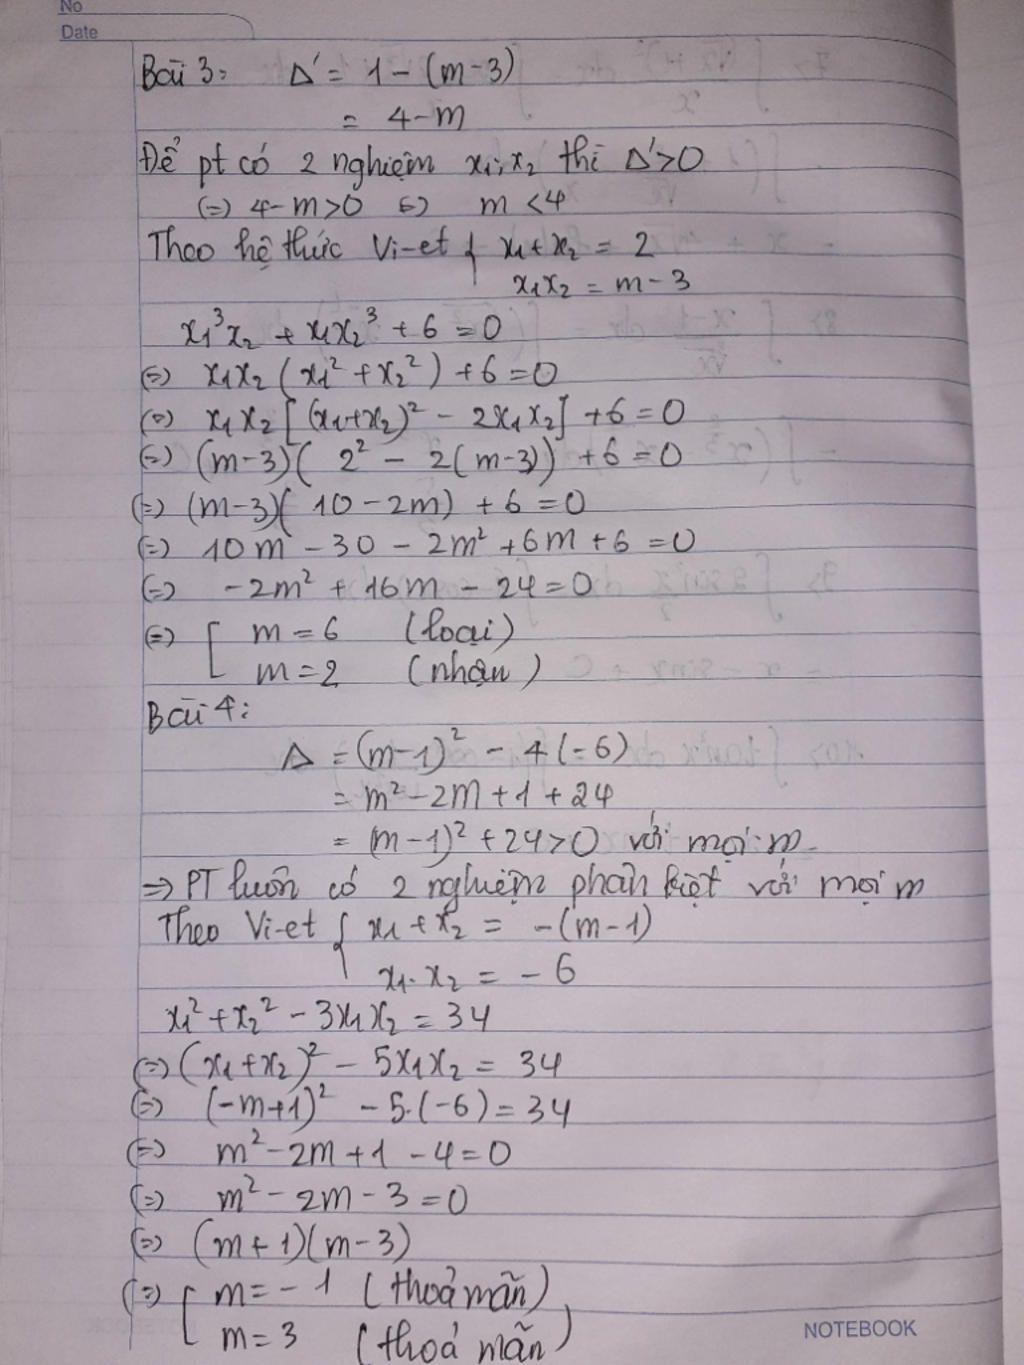 No
Date
Bài 3: Δ' = 1 - (m-3)
= 4-m
Để pt có 2 nghiệm x₁; x₂ thì Δ'>0
(=) 4-m>0 (=) m <4
Theo hệ thức Vi-et { x₁+x₂ = 2
x₁x₂ = m-3
x₁³x₂ + x₁x₂³ + 6 = 0
(=) x₁x₂ (x₁² + x₂²) + 6 = 0
(=) x₁x₂ [(x₁+x₂)² - 2x₁x₂] + 6 = 0
(=) (m-3)( 2² - 2(m-3)) + 6 = 0
(=) (m-3)( 10 - 2m) + 6 = 0
(=) 10m - 30 - 2m² + 6m + 6 = 0
(=) -2m² + 16m - 24 = 0
(=) [ m = 6 (loại)
m = 2 (nhận)
Bài 4:
Δ = (m-1)² - 4(-6)
= m² - 2m + 1 + 24
= (m-1)² + 24 > 0 với mọi m
=> PT luôn có 2 nghiệm phân biệt với mọi m
Theo Vi-et { x₁ + x₂ = -(m-1)
x₁. x₂ = - 6
x₁² + x₂² - 3x₁x₂ = 34
(=) (x₁ + x₂)² - 5x₁x₂ = 34
(=) (-m+1)² - 5.(-6) = 34
(=) m² - 2m + 1 - 4 = 0
(=) m² - 2m - 3 = 0
(=) (m + 1)(m - 3)
(=) [ m = - 1 (thoả mãn)
m = 3 (thoả mãn)
NOTEBOOK